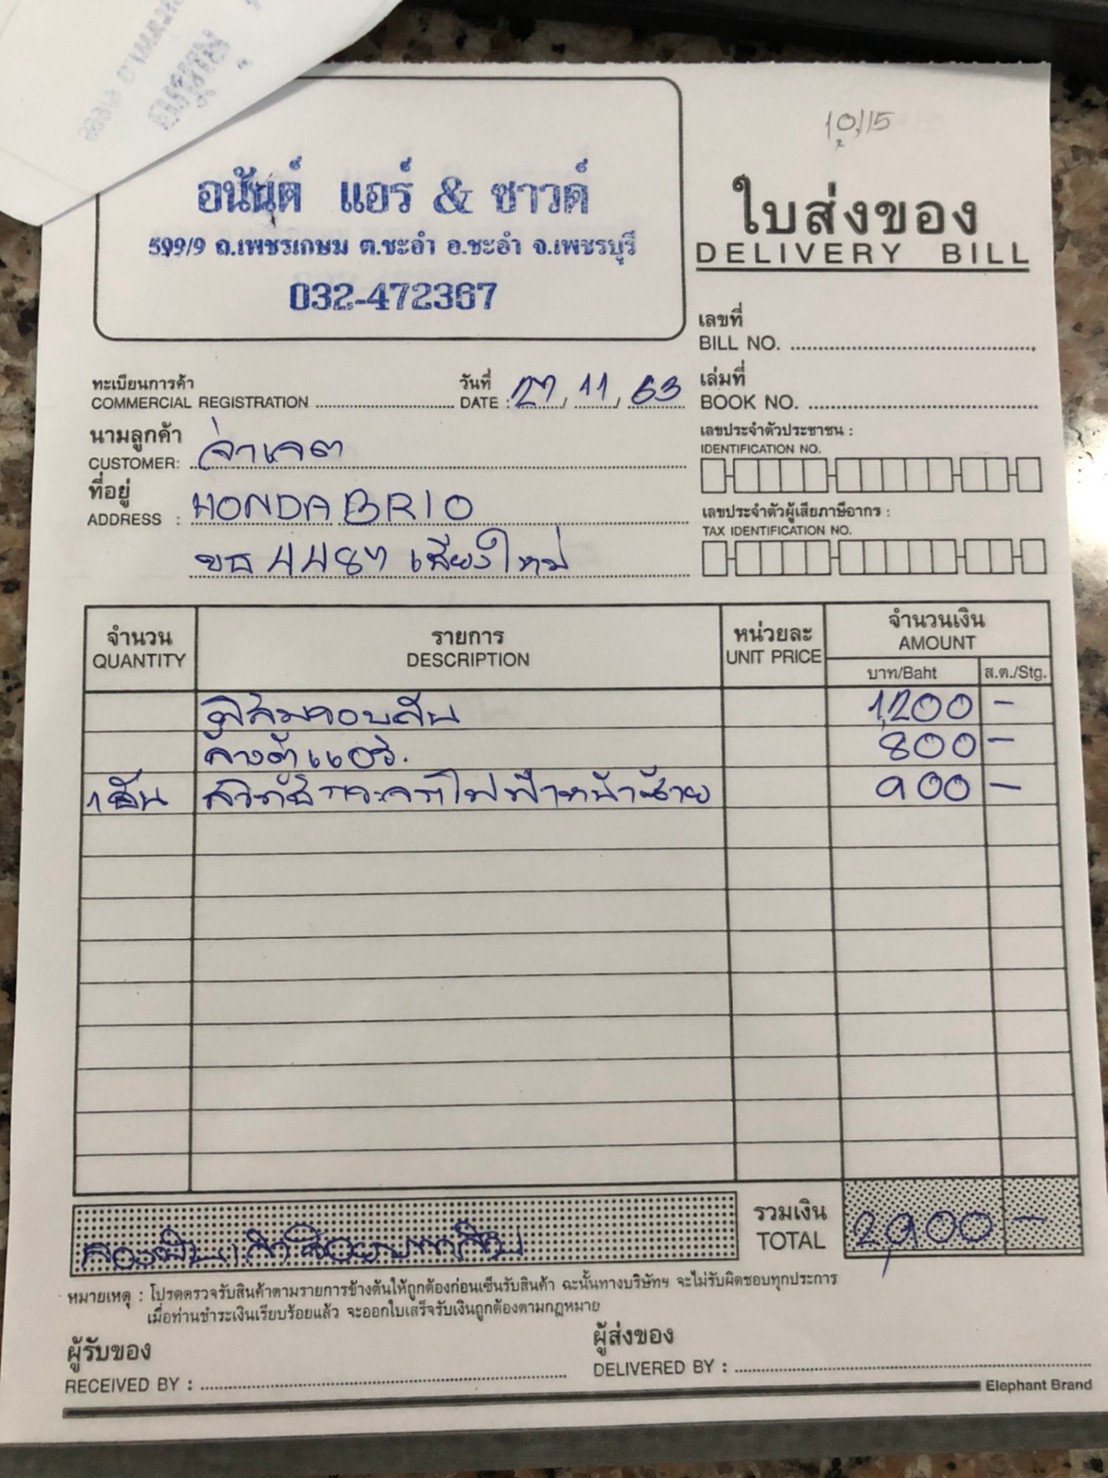 10,115
อนันต์ แอร์ & ซาวด์
599/9 ถ.เพชรเกษม ต.ชะอำ อ.ชะอำ จ.เพชรบุรี
032-472367
ใบส่งของ
DELIVERY BILL
เลขที่
BILL NO.
ทะเบียนการค้า
COMMERCIAL REGISTRATION
วันที่
DATE : 27/11/63
เล่มที่
BOOK NO.
นามลูกค้า
CUSTOMER: จ่าเจต
เลขประจำตัวประชาชน :
IDENTIFICATION NO.
ที่อยู่
ADDRESS : HONDA BRIO
เลขประจำตัวผู้เสียภาษีอากร :
TAX IDENTIFICATION NO.
ขธ 4487 เชียงใหม่
จำนวน รายการ หน่วยละ จำนวนเงิน
QUANTITY DESCRIPTION UNIT PRICE AMOUNT
บาท/Baht ส.ต./Stg.
ฟิล์มรอบคัน 1,200 -
ล้างตู้แอร์. 800 -
1 อัน สวิทช์กระจกไฟฟ้าหน้าซ้าย 900 -
สองพันเก้าร้อยบาทถ้วน
รวมเงิน
TOTAL 2,900 -
หมายเหตุ : โปรดตรวจรับสินค้าตามรายการข้างต้นให้ถูกต้องก่อนเซ็นรับสินค้า ฉะนั้นทางบริษัทฯ จะไม่รับผิดชอบทุกประการ
เมื่อท่านชำระเงินเรียบร้อยแล้ว จะออกใบเสร็จรับเงินถูกต้องตามกฎหมาย
ผู้รับของ
RECEIVED BY :
ผู้ส่งของ
DELIVERED BY :
Elephant Brand